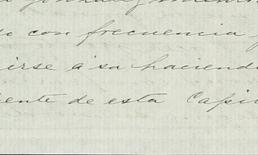 con frecuencia
irse á su haciend
ente de esta Capi